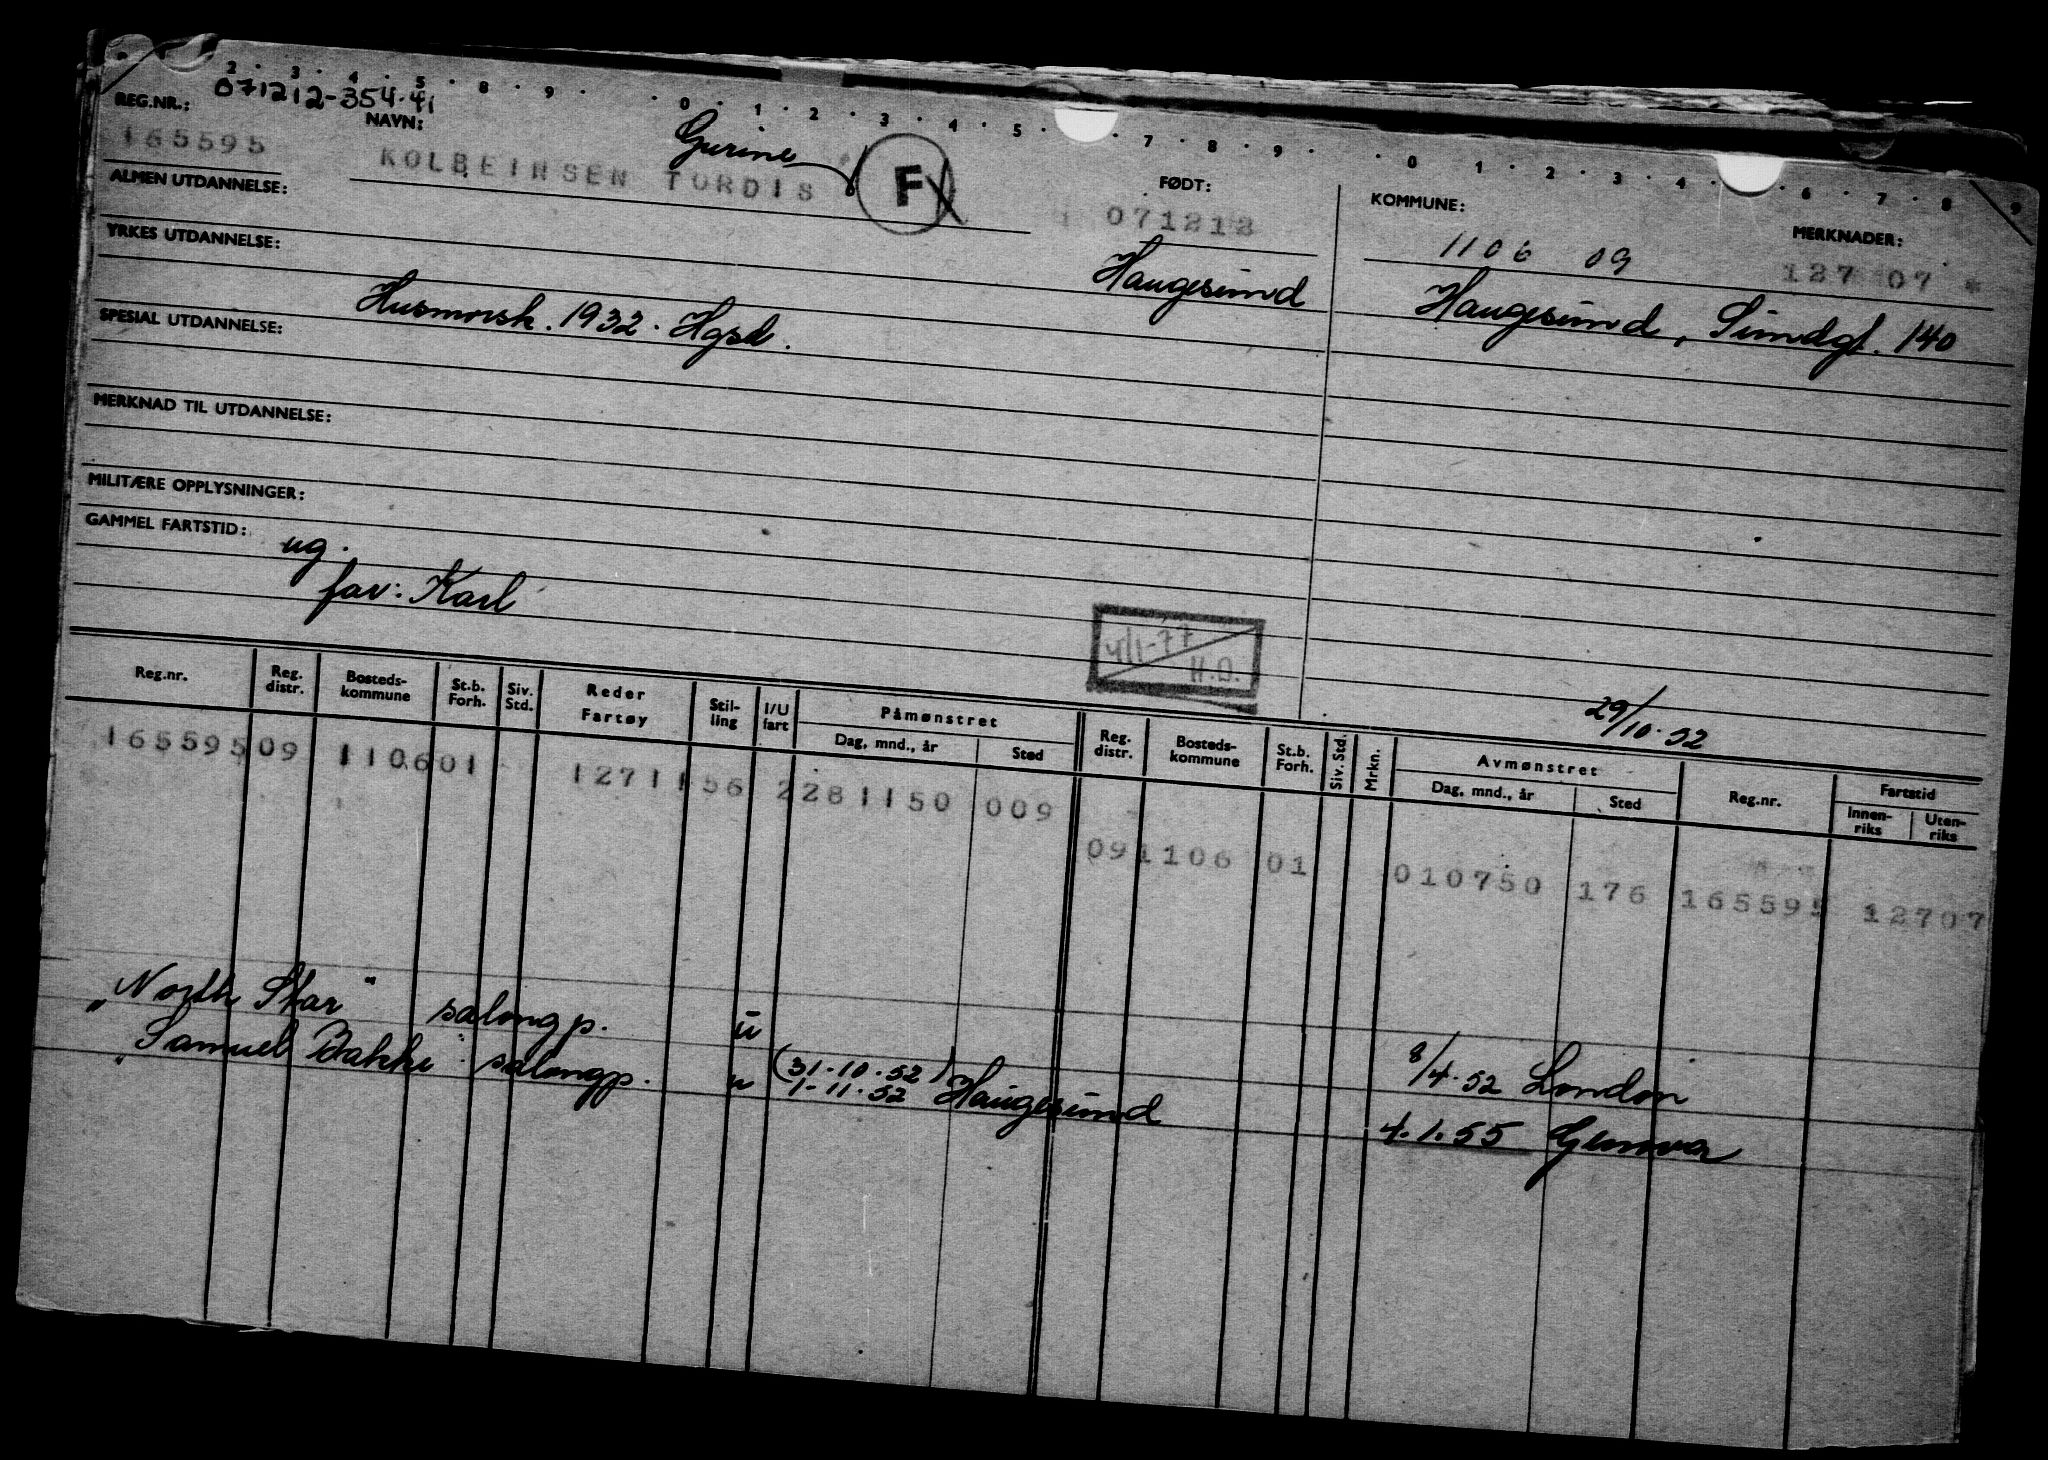 2 · 3 · 4 · 5 · 8 · 9 · · 0 · 1 · 2 · 3 · 4 · 5 · 7 · 8 · 9 · · 0 · 1 · 2 · 3 · 4 · 6 · 7 · 8 · 9
071212-354.41
REG.NR.: NAVN: Gurine FØDT: KOMMUNE: MERKNADER:
165595 KOLBEINSEN TORDIS F 071212 1106 09 127 07 *
ALMEN UTDANNELSE:
Haugesund Haugesund, Sundgt. 140
YRKES UTDANNELSE:
Husmorsk. 1932. Hgsd.
SPESIAL UTDANNELSE:
MERKNAD TIL UTDANNELSE:
MILITÆRE OPPLYSNINGER:
GAMMEL FARTSTID:
ug.
far: Karl
4/1-77
H.O.
29/10.52
Reg.nr. Reg. distr. Bosteds-kommune St.b. Forh. Siv. Std. Reder Fartøy Stil-ling I/U fart Påmønstret Dag, mnd., år Sted Reg. distr. Bosteds-kommune St.b. Forh. Siv. Std. Mrkn. Avmønstret Dag, mnd., år Sted Reg.nr. Fartstid Innen-riks Uten-riks
165595 09 1106 01 1271 156 2 281150 009
09 1106 01 010750 176 165595 12707
"North Star" salongp. u 8/4.52 London
"Samuel Bakke" salongp. u (31.10.52) 1.11.52 Haugesund 4.1.55 Genova